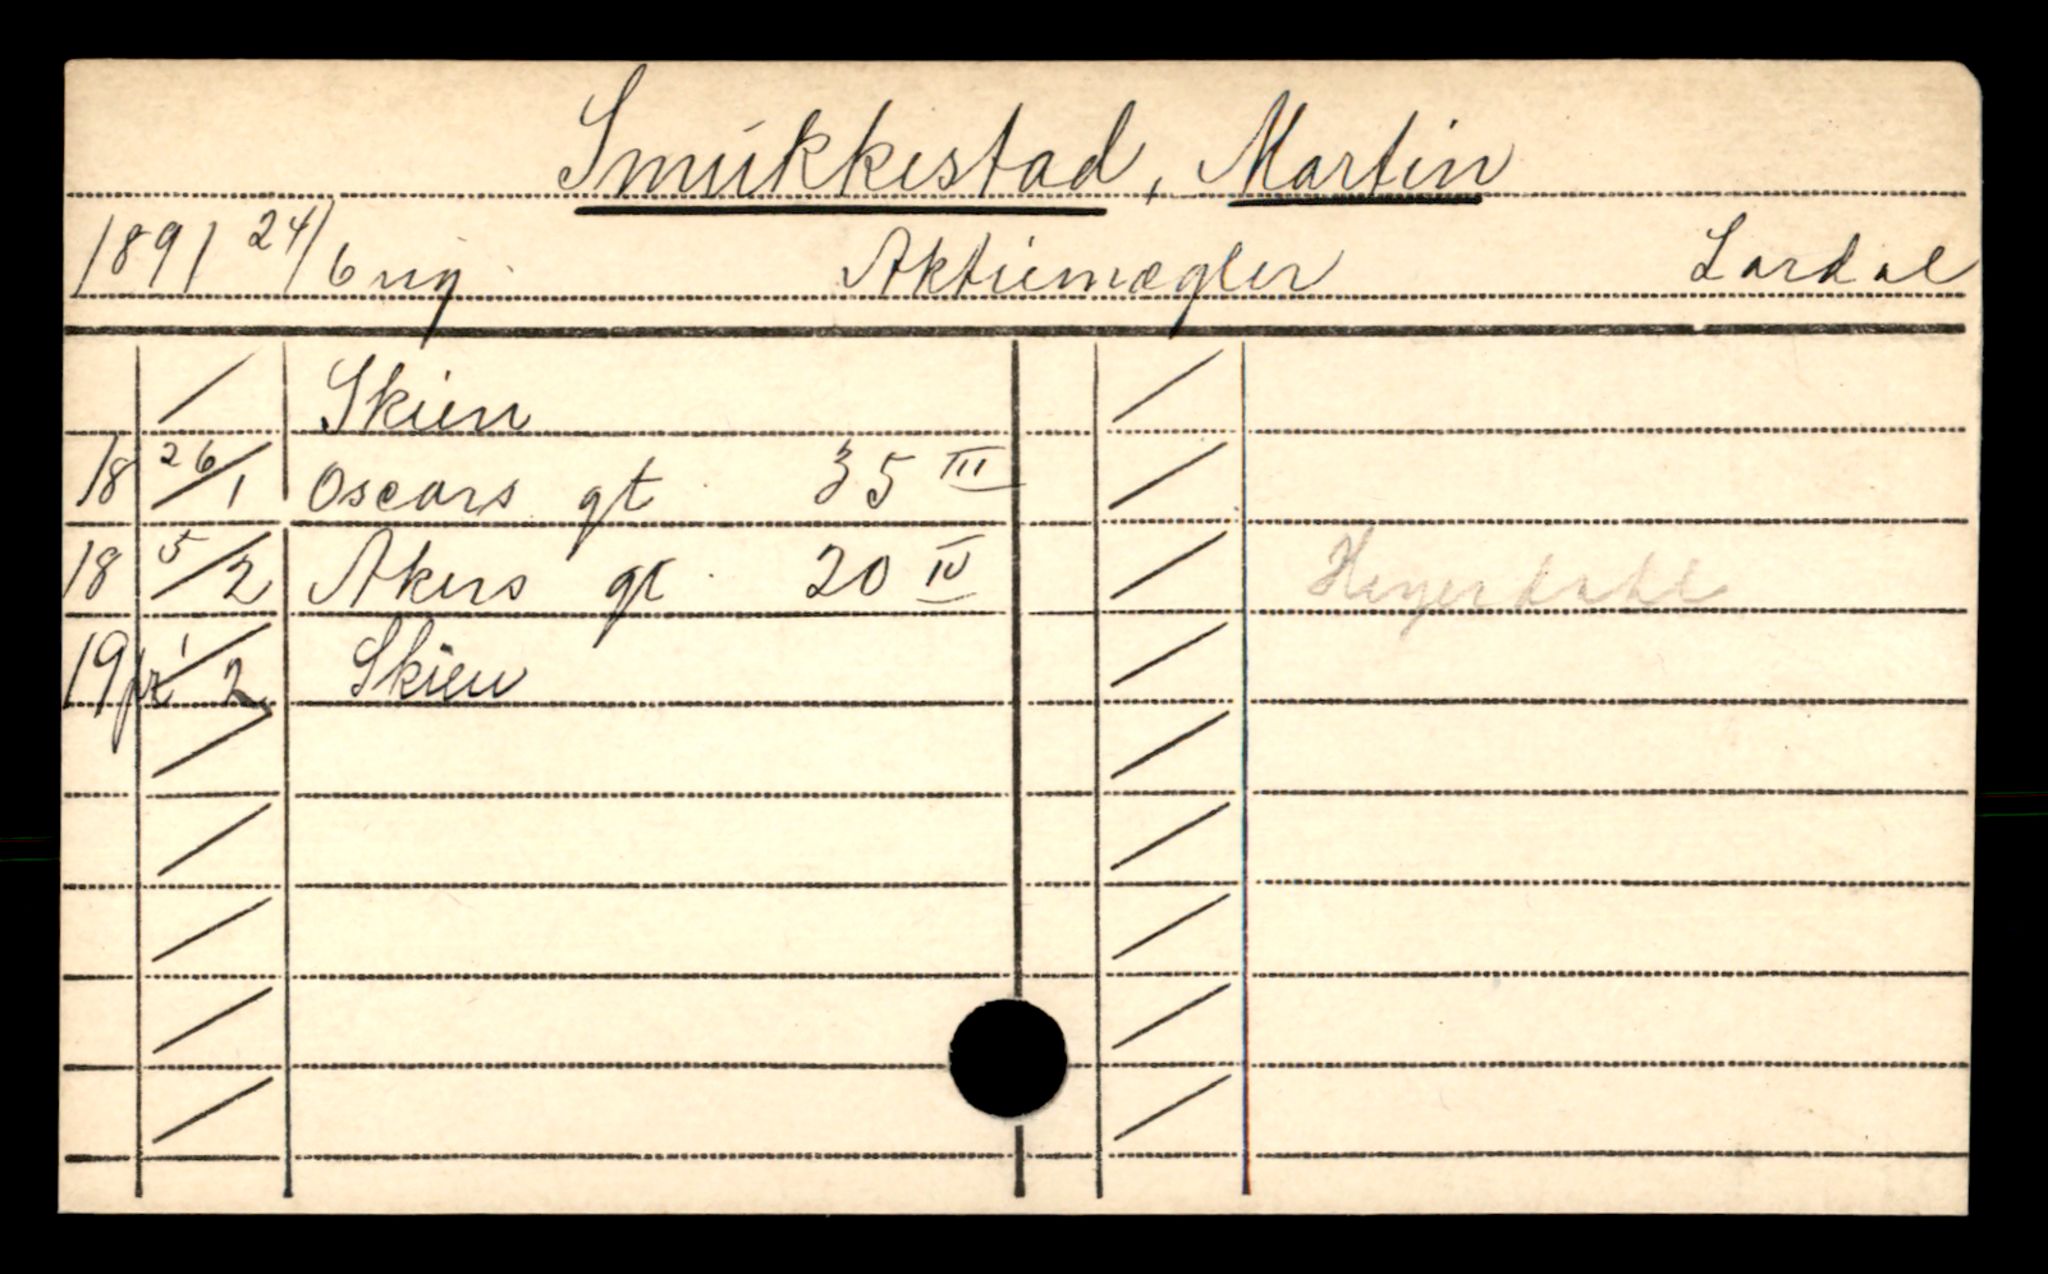 Smukkestad, Martin
1891 24/6 ug. Aktiemægler Lardal
Skien
18 26/1 Oscars gt. 35 III
18 5/2 Akers gt. 20 IV Heyerdahl
19 pr 1/2 Skien